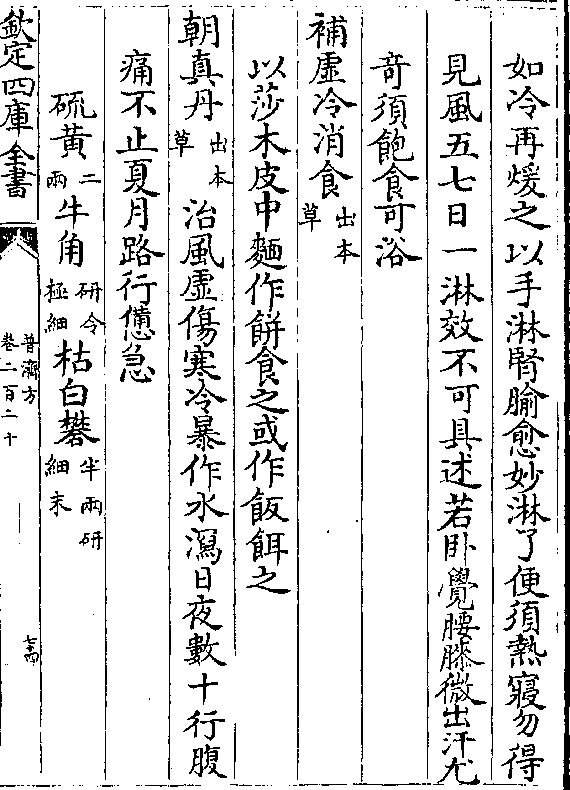 如冷再煖之以手淋腎腧愈妙淋了便須熱寢勿得
見風五七日一淋效不可具述若卧覺腰膝微出汗尤
竒須飽食可浴
補虚冷消食出本草
以莎木皮中麵作餅食之或作飯餌之
朝真丹出本草 治風虚傷寒冷暴作水瀉日夜數十行腹
痛不止夏月路行備急
硫黄二兩 牛角研令極細 枯白礬半兩研細末
欽定四庫全書
普濟方
卷二百二十
七十四